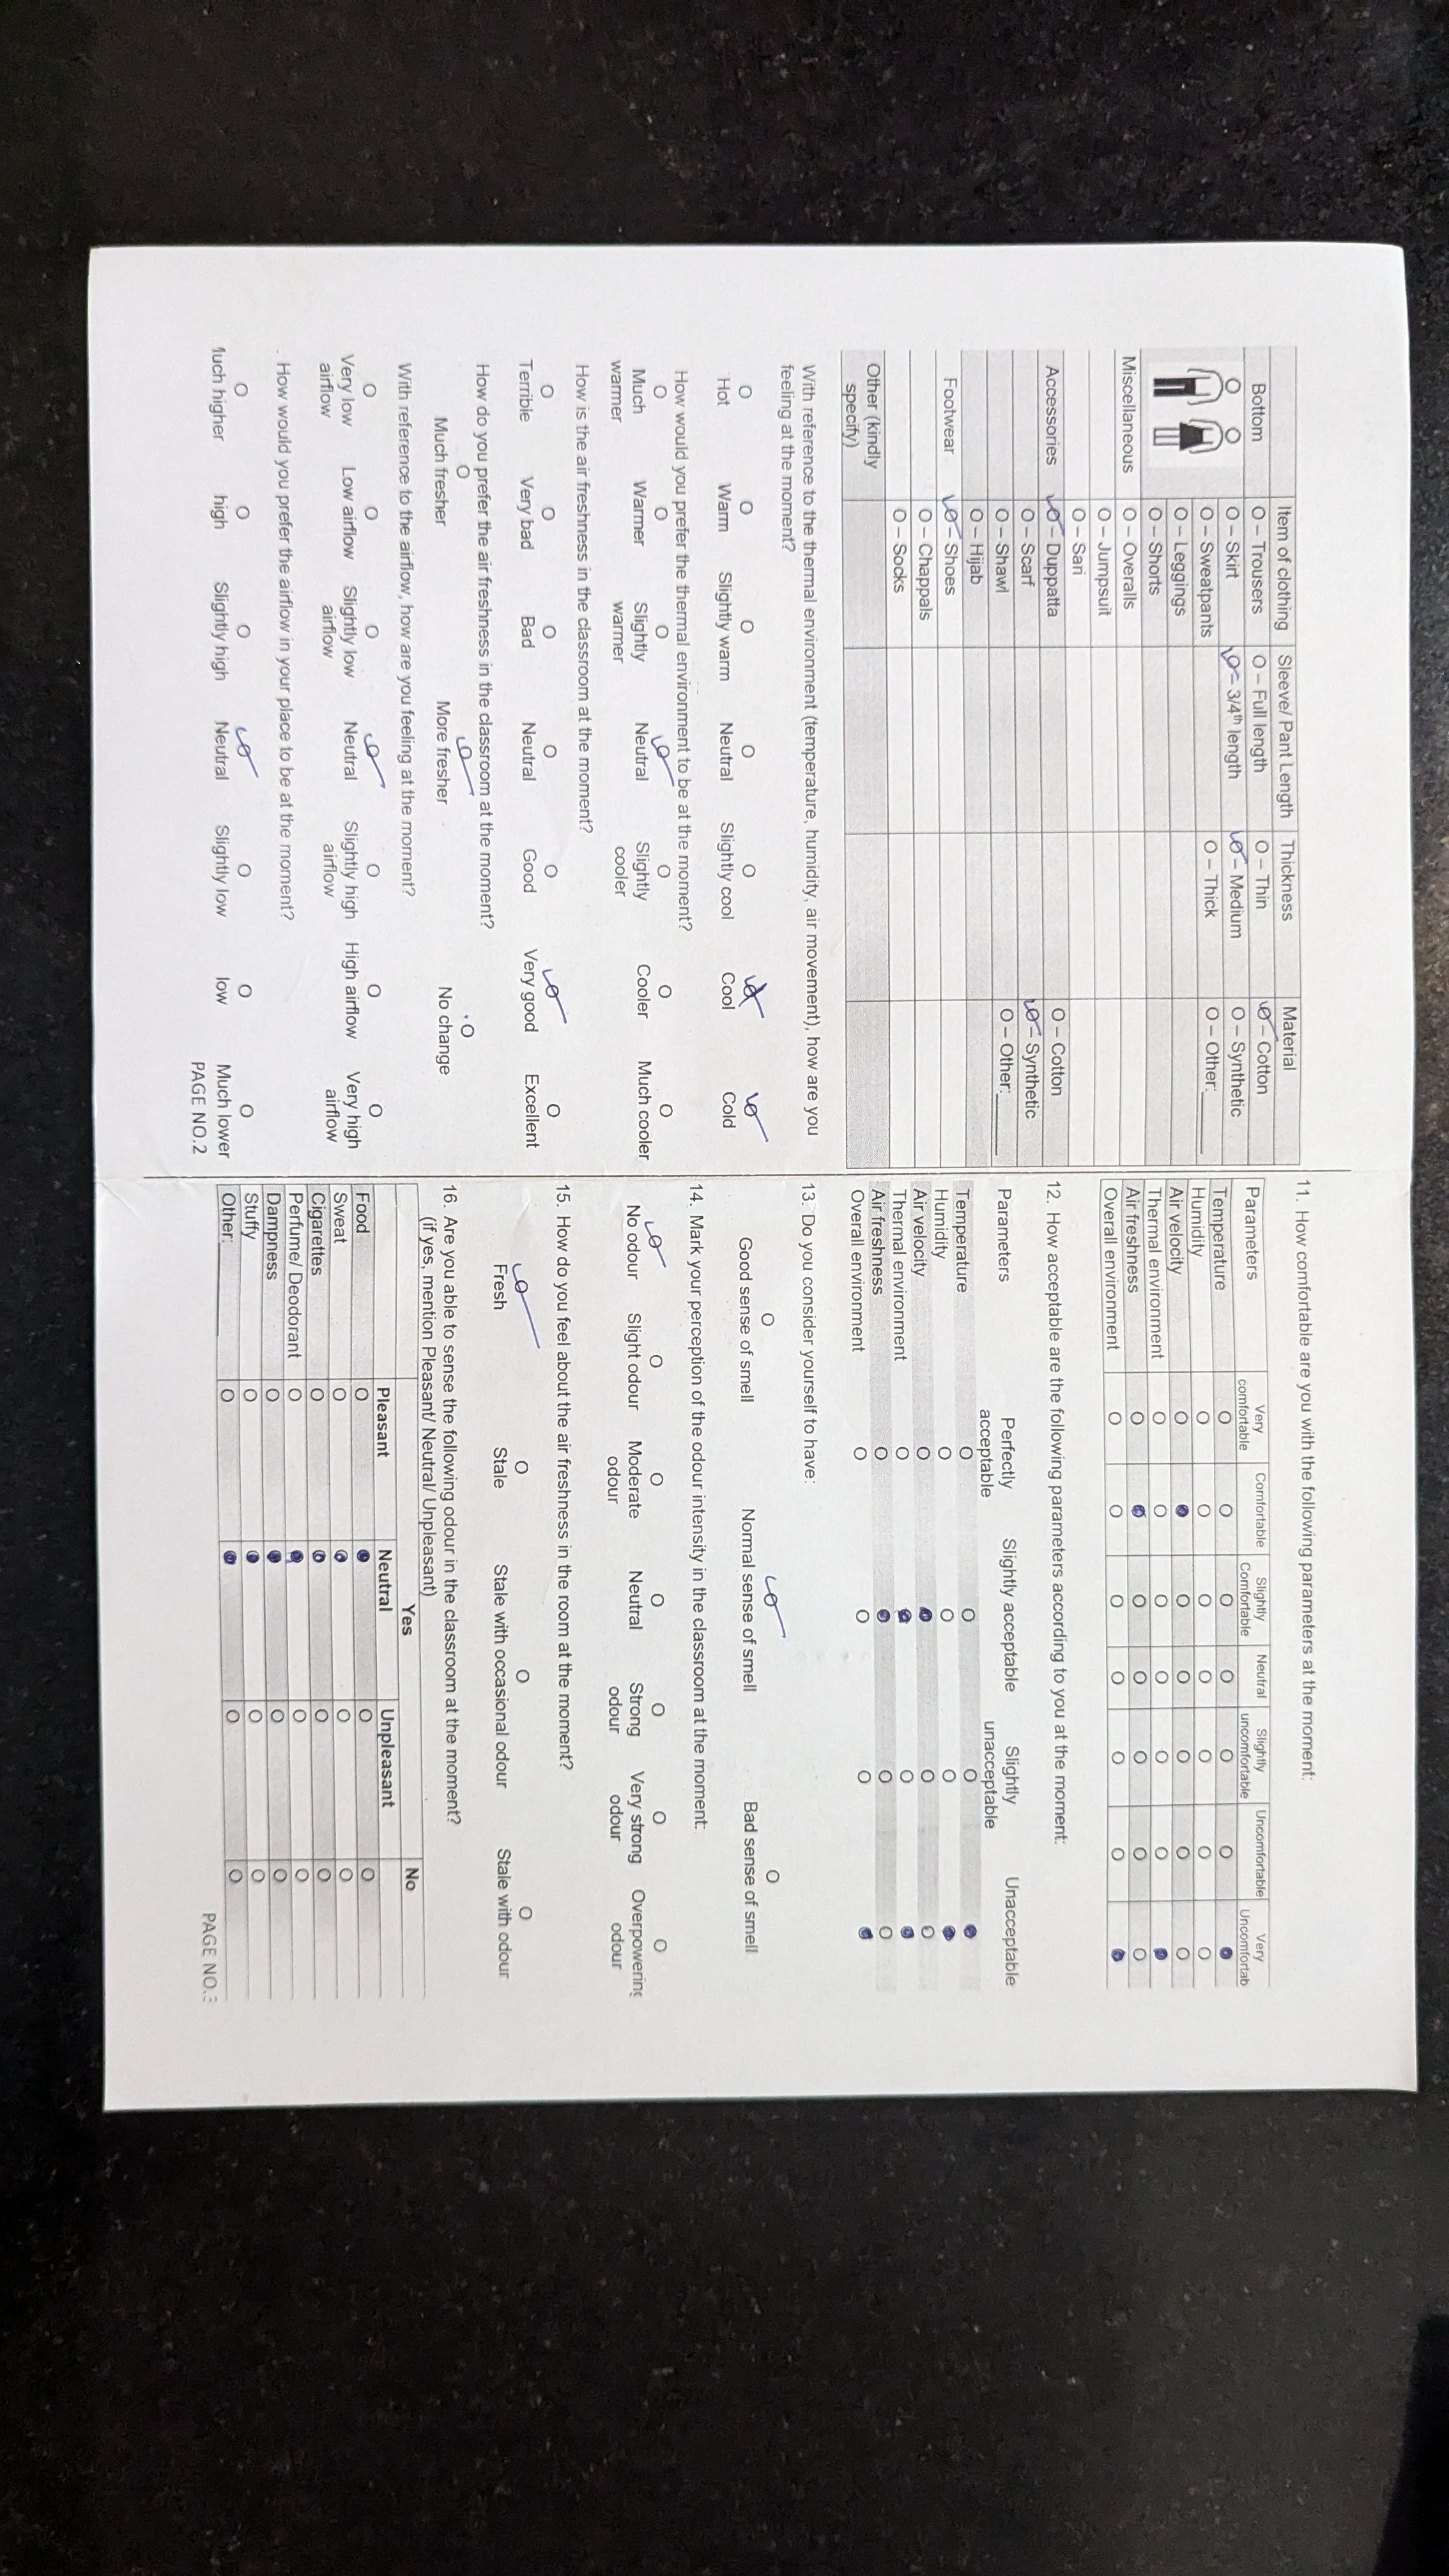 Item of clothing Sleeve/ Pant Length Thickness Material
Bottom O – Trousers O – Full length O – Thin O – Cotton
O – Skirt O – 3/4th length O – Medium O – Synthetic
O – Sweatpants O – Thick O – Other:______
O – Leggings
O – Shorts
Miscellaneous O – Overalls
O – Jumpsuit
O – Sari
Accessories O – Duppatta O – Cotton
O – Scarf O – Synthetic
O – Shawl O – Other:______
O – Hijab
Footwear O – Shoes
O – Chappals
O – Socks
Other (kindly
specify)
With reference to the thermal environment (temperature, humidity, air movement), how are you
feeling at the moment?
Hot Warm Slightly warm Neutral Slightly cool Cool Cold
How would you prefer the thermal environment to be at the moment?
Much Warmer Slightly Neutral Slightly Cooler Much cooler
warmer warmer cooler
How is the air freshness in the classroom at the moment?
Terrible Very bad Bad Neutral Good Very good Excellent
How do you prefer the air freshness in the classroom at the moment?
Much fresher More fresher No change
With reference to the airflow, how are you feeling at the moment?
Very low Low airflow Slightly low Neutral Slightly high High airflow Very high
airflow airflow airflow airflow
How would you prefer the airflow in your place to be at the moment?
higher high Slightly high Neutral Slightly low low Much lower
PAGE NO.2
11. How comfortable are you with the following parameters at the moment:
Parameters Very Comfortable Slightly Neutral Slightly Uncomfortable Very
comfortable Comfortable uncomfortable Uncomfortab
Temperature
Humidity
Air velocity
Thermal environment
Air freshness
Overall environment
12. How acceptable are the following parameters according to you at the moment:
Parameters Perfectly Slightly acceptable Slightly Unacceptable
acceptable unacceptable
Temperature
Humidity
Air velocity
Thermal environment
Air freshness
Overall environment
13. Do you consider yourself to have:
Good sense of smell Normal sense of smell Bad sense of smell
14. Mark your perception of the odour intensity in the classroom at the moment:
No odour Slight odour Moderate Neutral Strong Very strong Overpowering
odour odour odour odour
15. How do you feel about the air freshness in the room at the moment?
Fresh Stale Stale with occasional odour Stale with odour
16. Are you able to sense the following odour in the classroom at the moment?
(if yes, mention Pleasant/ Neutral/ Unpleasant)
Yes No
Pleasant Neutral Unpleasant
Food
Sweat
Cigarettes
Perfume/ Deodorant
Dampness
Stuffy
Other:______
PAGE NO.3